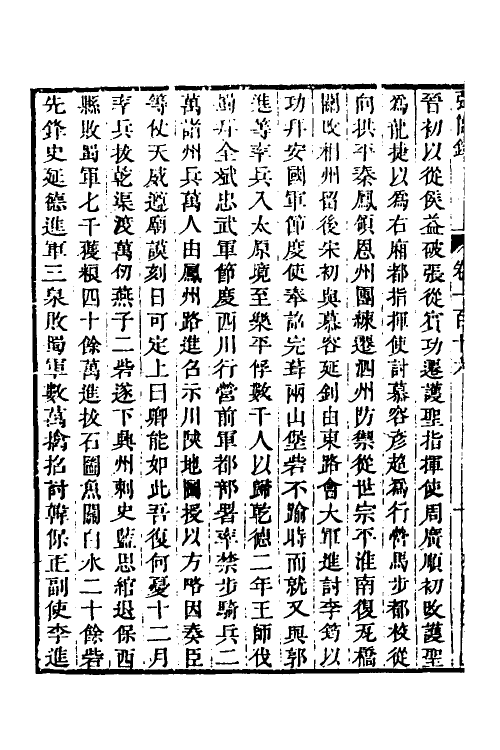 晉初以從侯益破張從賓功遷護聖指揮使周廣順初改護聖
為龍捷以為右廂都指揮使討慕容彥超為行營馬步都校從
向拱平秦鳳領恩州團練遷泗州防禦從世宗平淮南復瓦橋
關改相州留後宋初與慕容延釗由東路會大軍進討李筠以
功升安國軍節度使奉詔完葺兩山堡砦不踰時而就又與郭
進等率兵入太原境至樂平俘數千人以歸乾德二年王師伐
蜀升全斌忠武軍節度西川行營前軍都部署率禁步騎兵二
萬諸州兵萬人由鳳州路進召示川陝地圖授以方略因奏臣
等仗天威遵廟謨刻日可定上曰卿能如此吾復何憂十二月
率兵拔乾渠渡萬仞燕子二砦遂下興州刺史藍思綰退保西
縣敗蜀軍七千獲糗四十餘萬進拔石圌魚關白水二十餘砦
先鋒史延德進軍三泉敗蜀軍數萬擒招討韓保正副使李進
卷一百十六